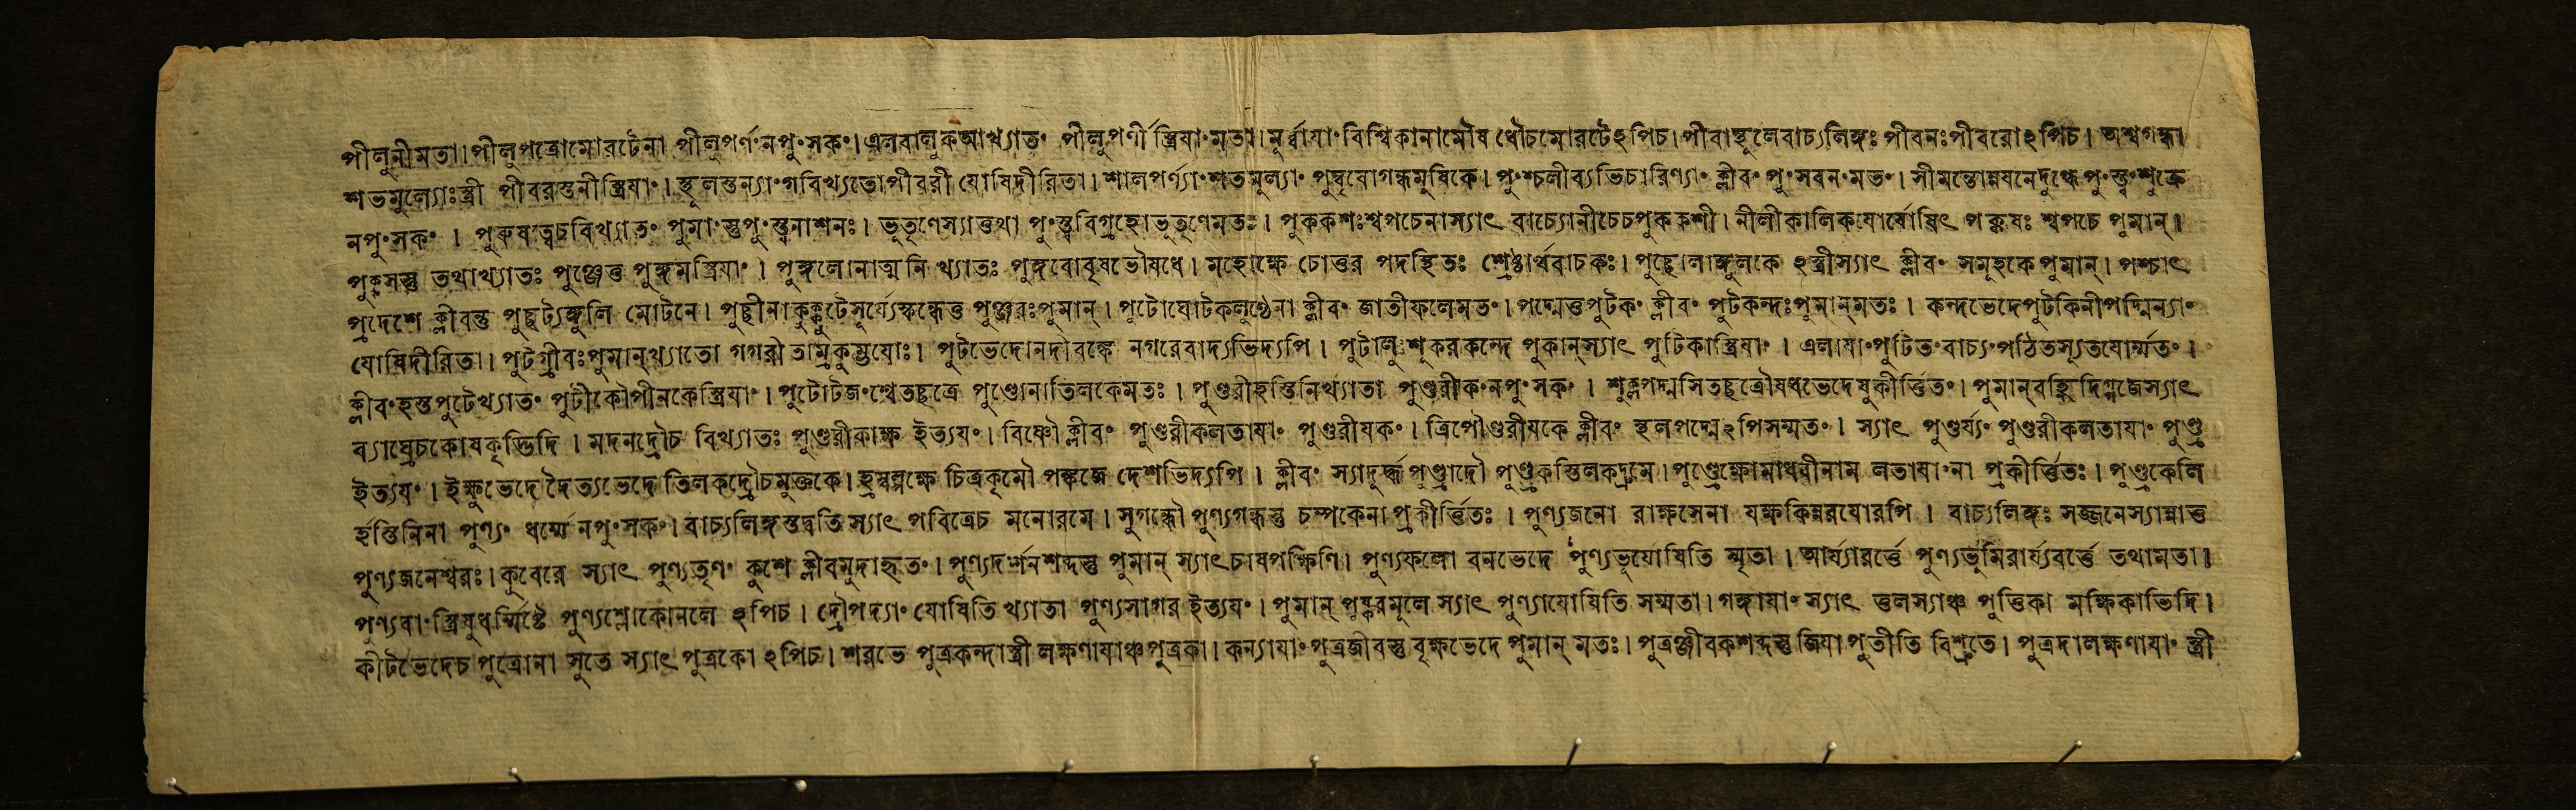 পীলুনীমতা।পীলুপত্রোমোরটেনা পীলুপর্ণ॰নপু॰সক॰।এলবালুকআখ্যাত॰ পীলুপর্ণী স্ত্রিযা॰মতা।মূর্ব্বাযা॰বিম্বিকানামৌষধৌচমোরটেঽপিচ।পীবাস্থূলেবাচ্যলিঙ্গঃ পীবনঃপীবরোঽপিচ। অশ্বগন্ধা
শতমুল্যোঃস্ত্রী পীবরস্তনীস্ত্রিযা॰। স্থূলস্তন্যা॰গবিখ্যাতাপীবরী যোষিদীরিতা। শালপর্ণ্যা॰শতমুল্যা॰ পু॰শ্চলীব্যভিচারিণ্যা॰ ক্লীব॰ পু॰সবন॰মত॰। সীমন্তোন্নযনেদুগ্ধেপু॰স্ত্ব॰শুক্রে
নপু॰সক॰ । পুরুষত্বেচবিখ্যাত॰ পুমা॰স্তুপু॰স্ত্বনাশনঃ। ভুতৃণেস্যাত্তথা পু॰স্ত্ববিগ্রহোভুতৃণেমতঃ। পুককশঃশ্বপচেনাস্যাৎ বাচ্যোনীচেচপুককশী। নীলীকালিকযোর্যোষিৎ পক্কষঃ শ্বপচে পুমান্।
পুক্কসস্তু তথাখ্যাতঃ পুঞ্জেতু পুঙ্গমস্ত্রিযা॰ । পুঙ্গলোনাত্মনি খ্যাতঃ পুঙ্গবোবৃষভৌষধে। মহোক্ষে চোত্তর পদস্থিতঃ শ্রেষ্ঠার্থবাচকঃ। পুচ্ছোলাঙ্গুলকে ঽস্ত্রীস্যাৎ ক্লীব॰ সমূহকেপুমান্। পশ্চাৎ
প্রদেশে ক্লীবন্তু পুচ্ছট্যঙ্গুলি মোটনে। পুচ্ছীনাকুক্কুটেসূর্য্যেস্কন্ধেতু পুঞ্জরঃপুমান্। পুটোঘোটকলুণ্ঠেনা ক্লীব॰ জাতীফলেমত॰। পদ্মেতুপুটক॰ ক্লীব॰ পুটকন্দঃপুমান্মতঃ । কন্দভেদেপুটকিনীপদ্মিন্যা॰
যোষিদীরিতা। পুটগ্রীবঃপুমান্খ্যাতো গর্গরী তাম্রকুম্ভযোঃ। পুটভেদোনদীবঙ্কে নগরেবাদ্যভিদ্যপি । পুটালুঃশূকরকন্দে পুকান্স্যাৎ পুটিকাস্ত্রিযা॰ । এলাযা॰পুটিত॰বাচ্য॰পঠিতস্যূতযোর্ম্মত॰ ।
ক্লীব॰হস্তপুটেখ্যাত॰ পুটীকৌপীনকেস্ত্রিযা॰। পুটোটজ॰শ্বেতছত্রে পুণ্ডোনাতিলকেমতঃ । পুণ্ডরীহস্তিনিখ্যাতা পুণ্ডরীক॰নপু॰সক॰ । শুক্লপদ্মসিতছত্রৌষধভেদেষুকীর্ত্তিত॰। পুমান্বহ্নিদিগ্গজেস্যাৎ
ব্যাঘ্রেচকোষকৃদ্ভিদি । মদনদ্রৌচ বিখ্যাতঃ পুণ্ডরীকাক্ষ ইত্যয॰। বিষ্ণৌ ক্লীব॰ পুণ্ডরীকলতাযা॰ পুণ্ডরীযক॰। ত্রিপৌণ্ডরীযকে ক্লীব॰ স্থলপদ্মেঽপিসম্মত॰ । স্যাৎ পুণ্ডর্য্য॰ পুণ্ডরীকলতাযা॰ পুণ্ড্র
ইত্যয॰। ইক্ষুভেদে দৈত্যভেদে তিলকদ্রৌচমুক্তকে। হ্রস্বপ্লক্ষে চিত্রকৃমৌ পঙ্কজে দেশভিদ্যপি । ক্লীব॰ স্যাদূর্দ্ধপুণ্ড্রাদৌ পুণ্ড্রকস্তিলকদ্রুমে। পুণ্ড্রেক্ষোমাধবীনাম লতাযা॰না প্রকীর্ত্তিতঃ। পুণ্ড্রকেলি
র্হস্তিনিনা পুণ্য॰ ধর্ম্মে নপু॰সক॰। বাচ্যলিঙ্গস্তদ্বতি স্যাৎ পবিত্রেচ মনোরমে। সুগন্ধৌ পুণ্যগন্ধস্তু চম্পকেনাপ্রকীর্ত্তিতঃ । পুণ্যজনো রাক্ষসেনা যক্ষকিন্নরযোরপি । বাচ্যলিঙ্গঃ সজ্জনেস্যান্নাতু
পুণ্যজনেশ্বরঃ। কুবেরে স্যাৎ পুণ্যতৃণ॰ কুশে ক্লীবমুদাহৃত॰। পুণ্যদর্শনশব্দস্তু পুমান্ স্যাৎচাষপক্ষিণি। পুণ্যফলো বনভেদে পুণ্যভূযোষিতি স্মৃতা। আর্য্যাবর্ত্তে পুণ্যভূমিরার্য্যবর্ত্তে তথামতা।
পুণ্যবা॰স্ত্রিষুধর্ম্মিষ্টে পুণ্যশ্লোকোনলে ঽপিচ। দ্রৌপদ্যা॰ যোষিতি খ্যাতা পুণ্যসাগর ইত্যয॰। পুমান্ পুষ্করমূলে স্যাৎ পুণ্যাযোষিতি সম্মতা। গঙ্গাযা॰ স্যাৎ তুলস্যাঞ্চ পুত্তিকা মক্ষিকাভিদি।
কীটভেদেচ পুত্রোনা সুতে স্যাৎ পুত্রকো ঽপিচ। শরভে পুত্রকন্দাস্ত্রী লক্ষণাযাঞ্চপুত্রকা। কন্যাযা॰ পুত্রজীবস্তু বৃক্ষভেদে পুমান্ মতঃ। পুত্রঞ্জীবকশব্দস্তু জিযা পুতীতি বিশ্রুতে। পুত্রদালক্ষণাযা॰ স্ত্রী